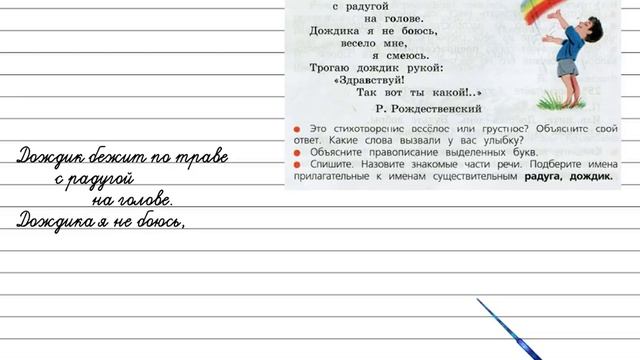 с радугой
на голове.
Дождика я не боюсь,
весело мне,
я смеюсь.
Трогаю дождик рукой:
«Здравствуй!
Так вот ты какой!..»
Р. Рождественский
● Это стихотворение весёлое или грустное? Объясните свой
ответ. Какие слова вызвали у вас улыбку?
● Объясните правописание выделенных букв.
● Спишите. Назовите знакомые части речи. Подберите имена
прилагательные к именам существительным радуга, дождик.
Дождик бежит по траве
с радугой
на голове.
Дождика я не боюсь,